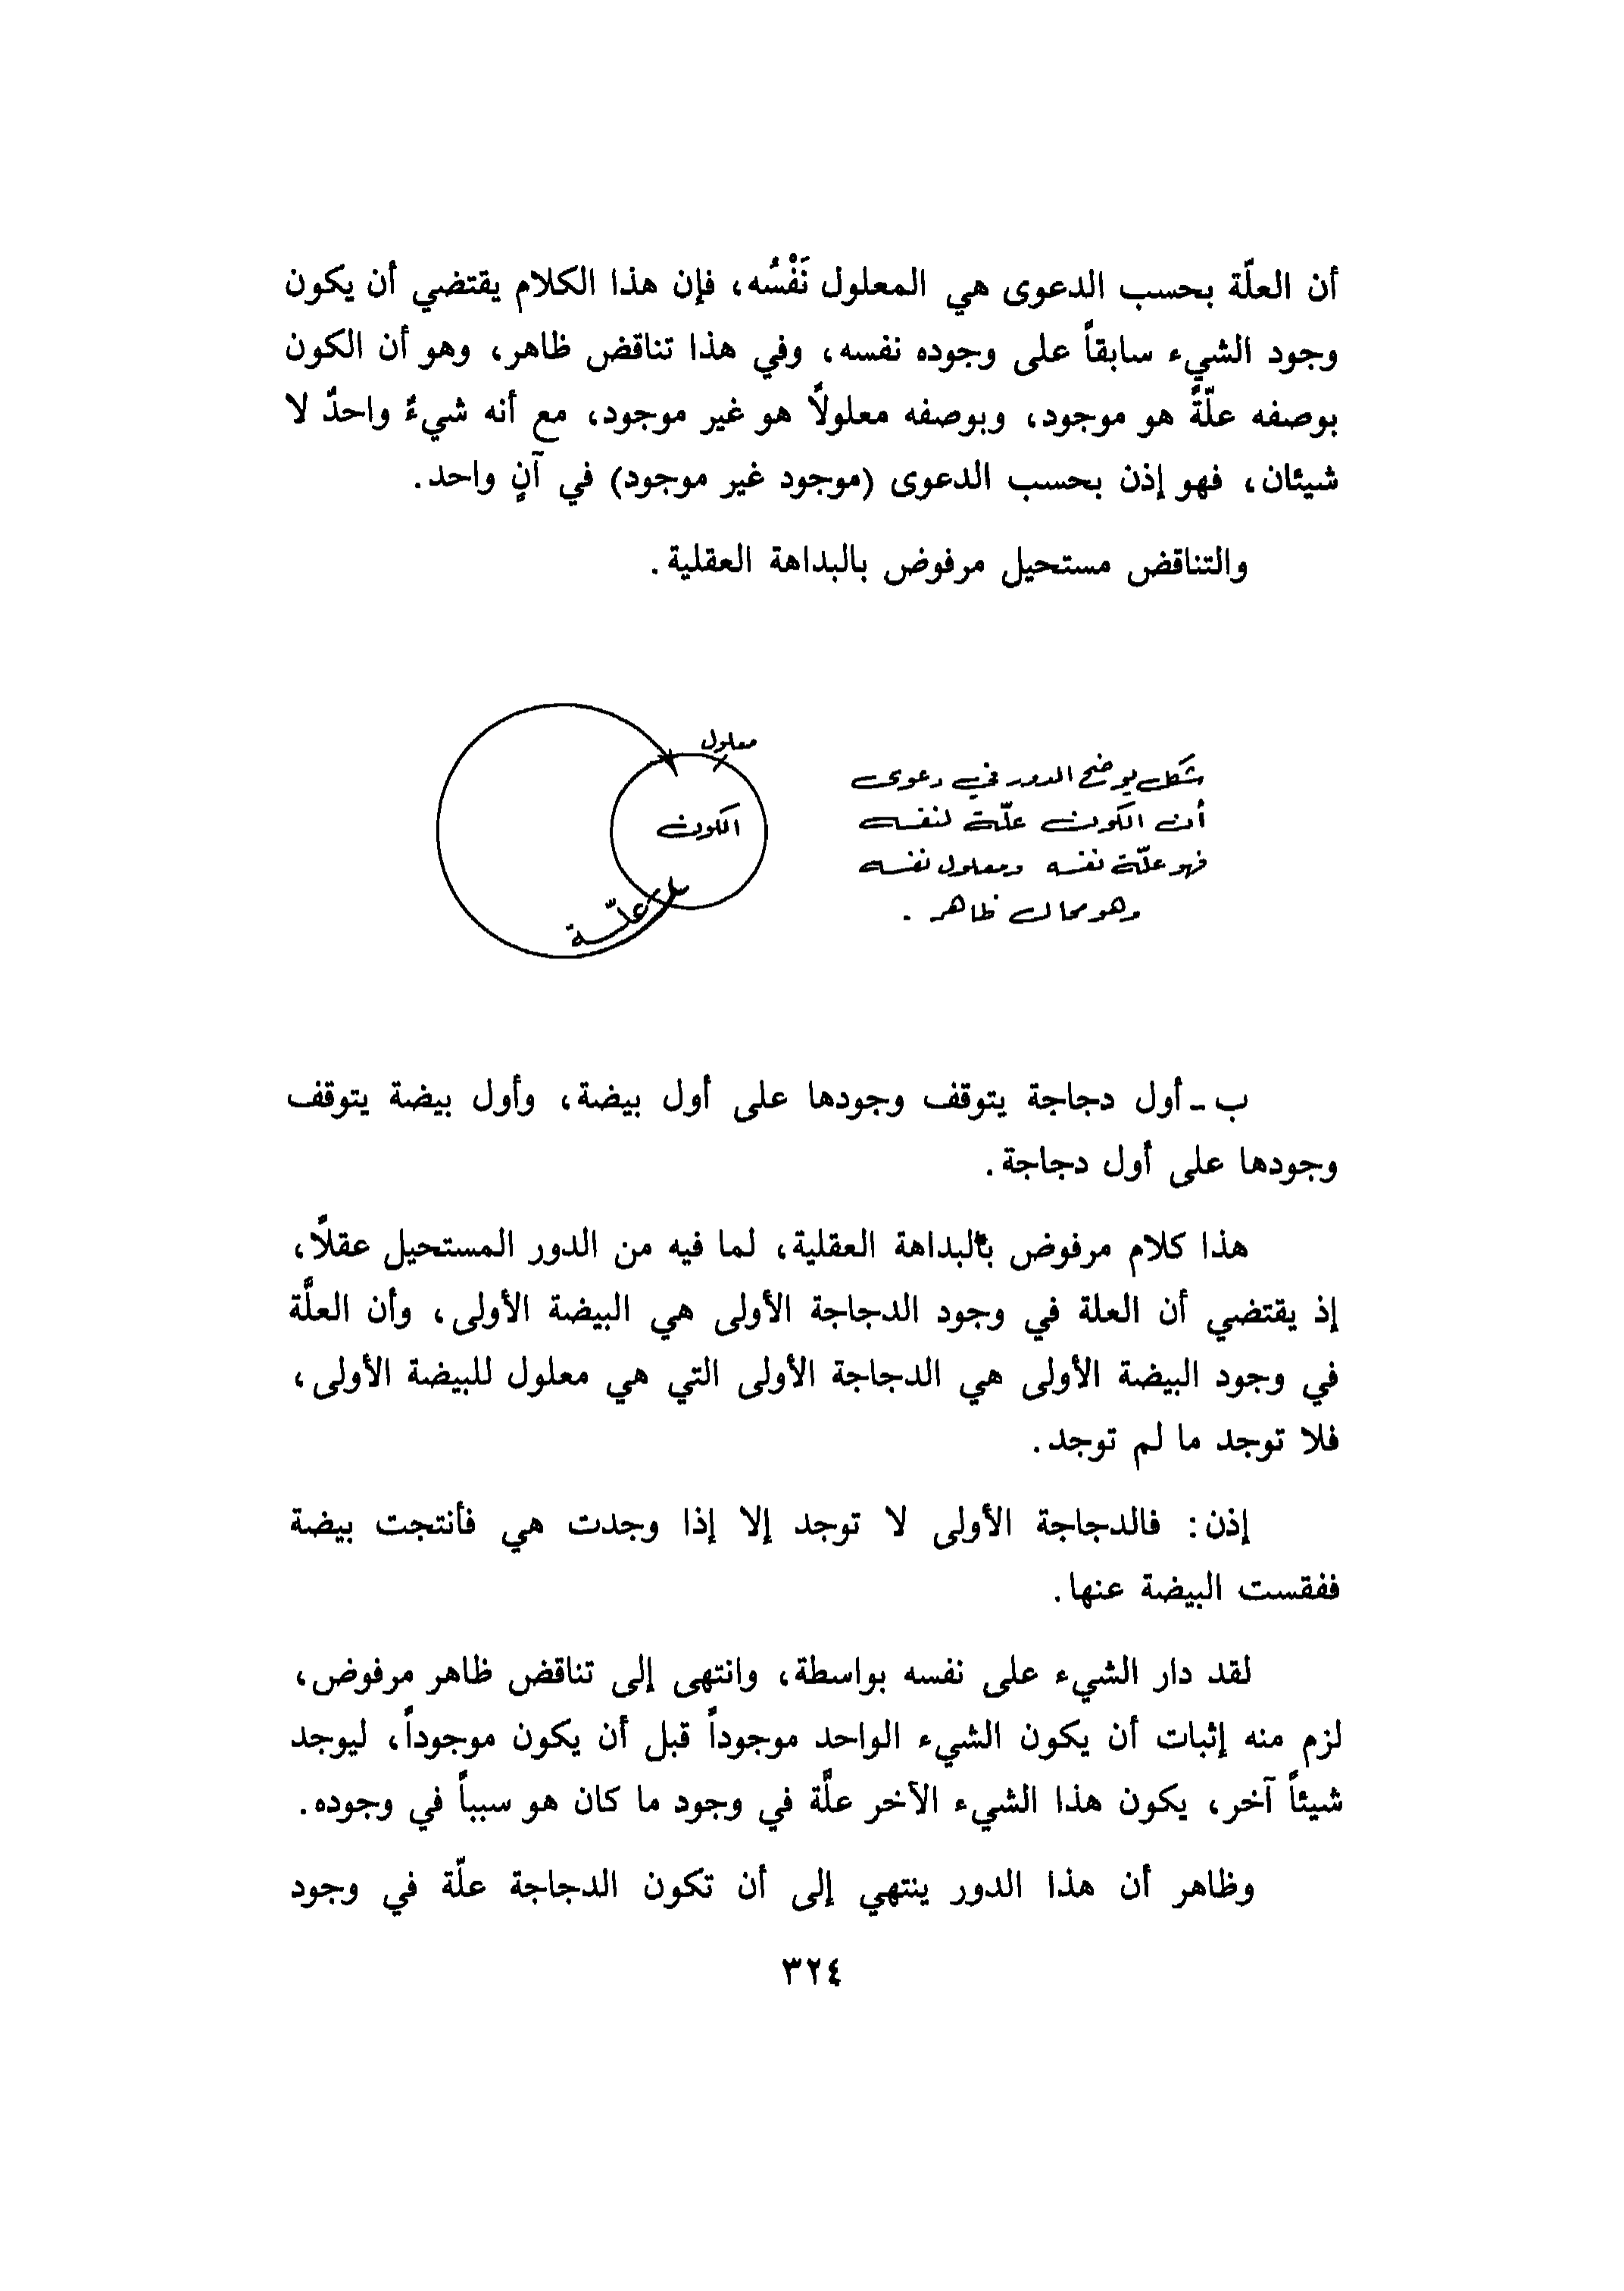 أن العلّة بحسب الدعوى هي المعلول نَفْسُه، فإن هذا الكلام يقتضي أن يكون
وجود الشيء سابقاً على وجوده نفسه، وفي هذا تناقض ظاهر، وهو أن الكون
بوصفه علّةً هو موجود، وبوصفه معلولاً هو غير موجود، مع أنه شيءٌ واحدٌ لا
شيئان، فهو إذن بحسب الدعوى (موجود غير موجود) في آنٍ واحد.
والتناقض مستحيل مرفوض بالبداهة العقلية.
شكل يوضح الدور في دعوى
أن الكون علّة لنفسه
فهو علّة نفسه ومعلول نفسه
وهو محال ظاهر.
معلول
الكون
علّة
ب ـ أول دجاجة يتوقف وجودها على أول بيضة، وأول بيضة يتوقف
وجودها على أول دجاجة.
هذا كلام مرفوض بالبداهة العقلية، لما فيه من الدور المستحيل عقلاً،
إذ يقتضي أن العلة في وجود الدجاجة الأولى هي البيضة الأولى، وأن العلَّة
في وجود البيضة الأولى هي الدجاجة الأولى التي هي معلول للبيضة الأولى،
فلا توجد ما لم توجد.
إذن: فالدجاجة الأولى لا توجد إلا إذا وجدت هي فأنتجت بيضة
ففقست البيضة عنها.
لقد دار الشيء على نفسه بواسطة، وانتهى إلى تناقض ظاهر مرفوض،
لزم منه إثبات أن يكون الشيء الواحد موجوداً قبل أن يكون موجوداً، ليوجد
شيئاً آخر، يكون هذا الشيء الآخر علَّة في وجود ما كان هو سبباً في وجوده.
وظاهر أن هذا الدور ينتهي إلى أن تكون الدجاجة علّة في وجود
٣٢٤